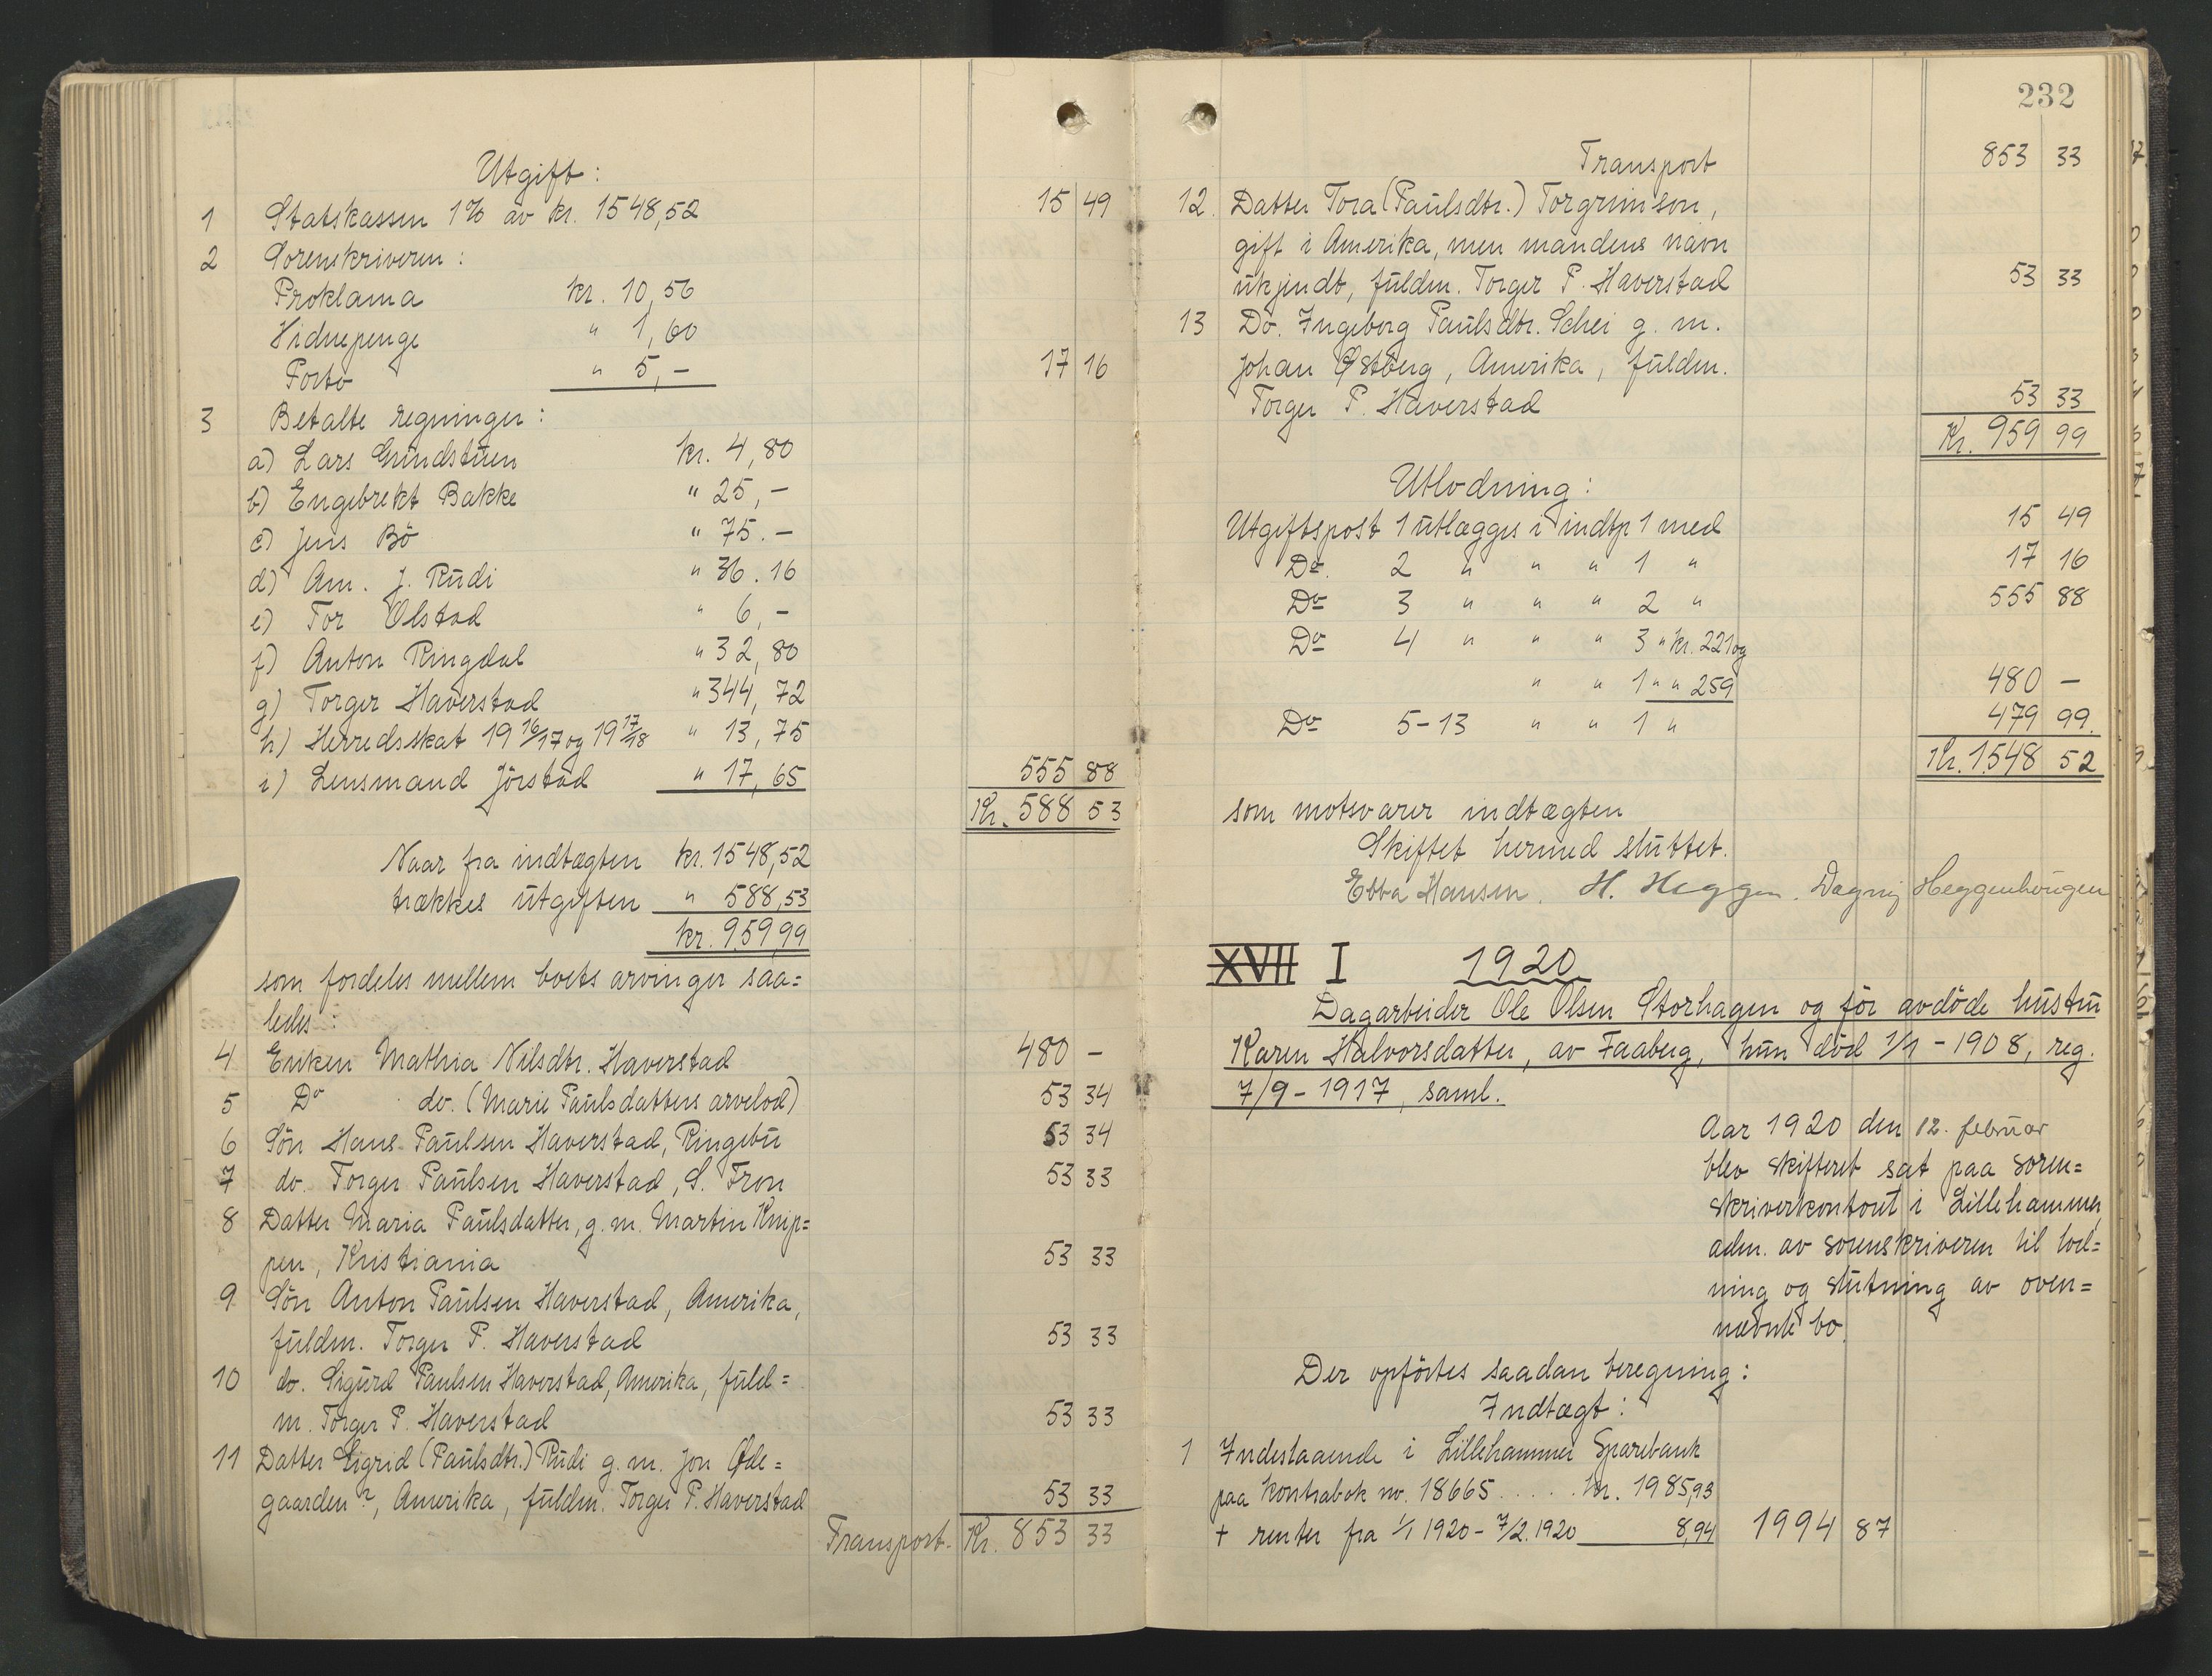 Utgift:
1 Statskassen 1% av kr. 1548,52 15 49
2 Sorenskriveren:
Proklama kr. 10,56
Vidnepenge " 1,60
Porto " 5,- 17 16
3 Betalte regninger:
a) Lars Grindstuen kr. 4,80
b) Engebrekt Bakke " 25,-
c) Jens Bö " 75.-
d) Am. J. Rudi " 36.16
e) Tor Olstad " 6,-
f) Anton Ringdal " 32,80
g) Torger Haverstad " 344,72
h) Herredsskat 19 16/17 og 19 17/18 " 13,75
i) Lensmand Jörstad " 17,65 555 88
Kr. 588 53
Naar fra indtægten kr. 1548,52
trækkes utgiften " 588,53
kr. 959,99
som fordeles mellem boets arvinger saa=
ledes:
4 Eriken Mathia Nilsdtr. Haverstad 480 -
5 Do do. (Marie Paulsdatters arvelod) 53 34
6 Sön Hans Paulsen Haverstad, Ringebu 53 34
7 do. Torger Paulsen Haverstad, S. Fron 53 33
8 Datter Maria Paulsdatter, g. m. Martin Knip=
pen, Kristiania 53 33
9 Sön Anton Paulsen Haverstad, Amerika,
fuldm. Torger P. Haverstad 53 33
10 do. Sigurd Paulsen Haverstad, Amerika, fuld=
m. Torger P. Haverstad 53 33
11 Datter Sigrid (Paulsdtr.) Rudi g. m. Jon Øde=
gaarden?, Amerika, fuldm. Torger P. Haverstad 53 33
Transport. Kr. 853 33
232
Transport 853 33
12. Datter Tora (Paulsdtr.) Torgrimson,
gift i Amerika, men mandens navn
ukjendt, fuldm. Torger P. Haverstad 53 33
13 Do. Ingeborg Paulsdtr. Schei g. m.
Johan Østberg, Amerika, fuldm.
Torger P. Haverstad 53 33
Kr. 959 99
Utlodning:
Utgiftspost 1 utlægges i indtp 1 med 15 49
Do. 2 " " " 1 " 17 16
Do 3 " " " 2 " 555 88
Do 4 " " " 3 " kr. 221 og
" " 1 " " 259 480 -
Do 5-13 " " 1 " 479 99.
Kr. 1548 52
som motsvarer indtægten
Skiftet hermed sluttet.
Ebba Hansen. H. Heggen. Dagny Heggenhougen
XVII I 1920
Dagarbeider Ole Olsen Storhagen og för avdöde hustru
Karen Halvorsdatter, av Faaberg, hun död 1/1 - 1908, reg.
7/9 - 1917, saml.
Aar 1920 den 12. februar
blev skifteret sat paa soren=
skriverkontoret i Lillehammer,
adm. av sorenskriveren til lod=
ning og slutning av oven=
nævnte bo.
Der opförtes saadan beregning:
Indtægt:
1 Indestaaende i Lillehammer Sparebank
paa kontrabok no. 18665 . . . . . kr. 1985,93
+ renter fra 1/1 1920 - 7/2 1920 8,94 1994 87